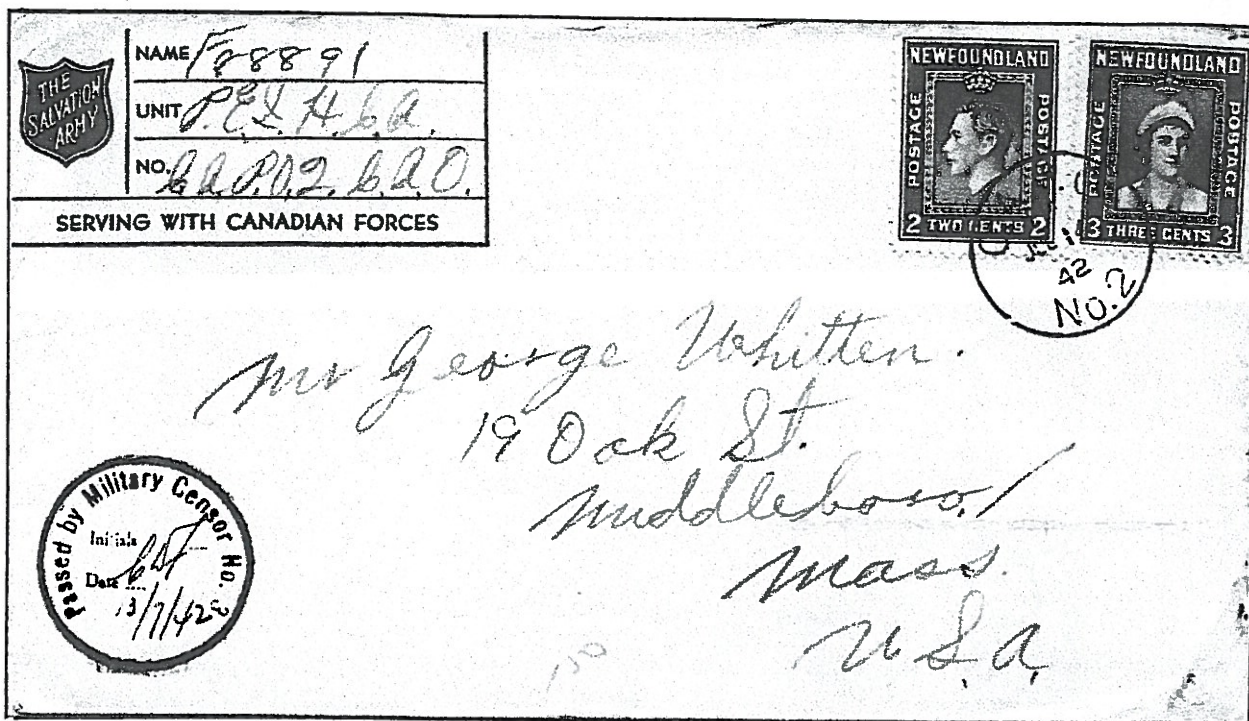 THE
SALVATION
ARMY
NAME F28891
UNIT P.E.I. H. C.A.
NO. C.A.P.O. 2. C.A.O.
SERVING WITH CANADIAN FORCES
NEWFOUNDLAND
POSTAGE POSTAGE
2 TWO CENTS 2
NEWFOUNDLAND
POSTAGE POSTAGE
3 THREE CENTS 3
42
NO. 2
Mr George Whitten.
19 Oak St.
Middleboro,
Mass.
U.S.A.
Passed by Military Censor No. 3
Initials
Date 13/7/42